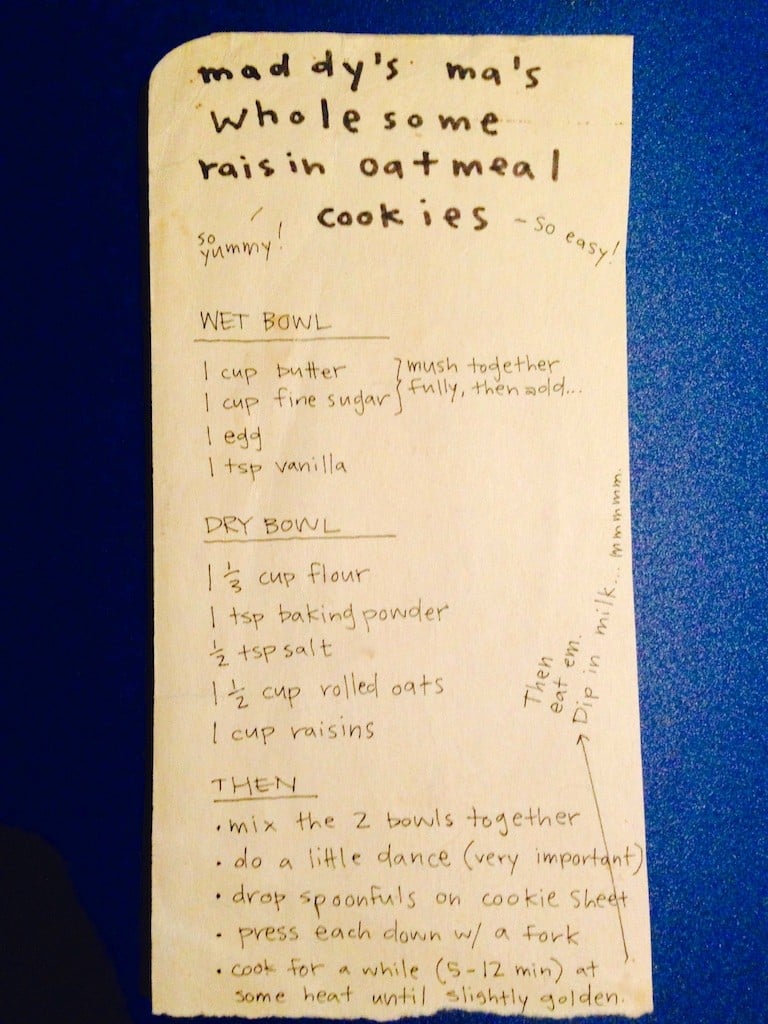 maddy's ma's
wholesome
raisin oatmeal
cookies
- so easy!
so
yummy!
WET BOWL
1 cup butter } mush together
1 cup fine sugar } fully, then add...
1 egg
1 tsp vanilla
DRY BOWL
1 1/3 cup flour
1 tsp baking powder
1/2 tsp salt
1 1/2 cup rolled oats
1 cup raisins
THEN
• mix the 2 bowls together
• do a little dance (very important)
• drop spoonfuls on cookie sheet
• press each down w/ a fork
• cook for a while (5-12 min) at
some heat until slightly golden.
Then
eat em.
Dip in milk... mmmmm.